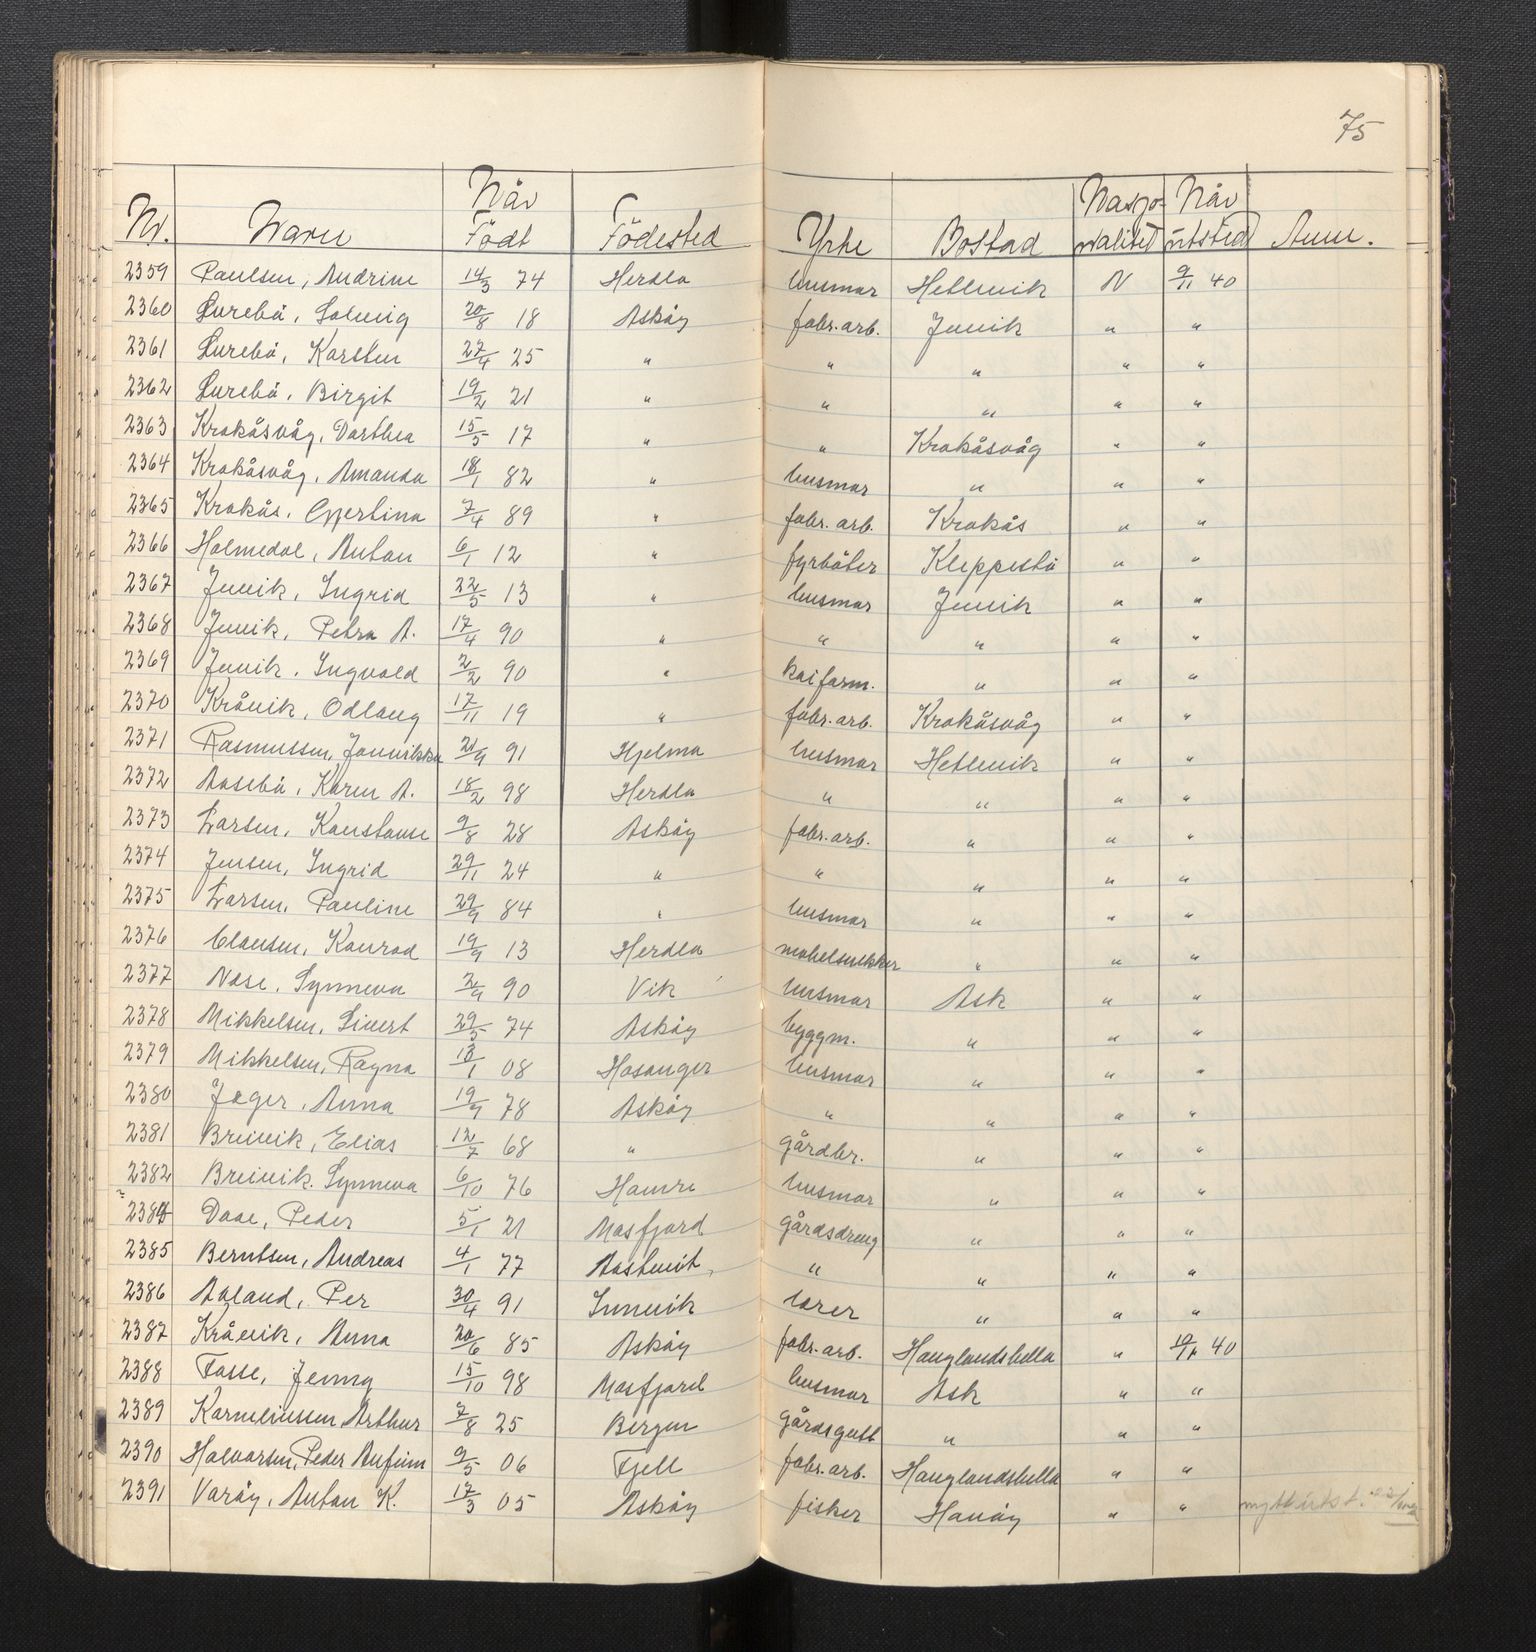 75
Nr. Navn Når Födt Födested Yrke Bostad Nasjonalitet Når utsted Anm.
2359 Paulsen, Andrine 14/3 74 Herdla husmor Hetlevik N 9/11 40
2360 Lurebö, Solveig 20/8 18 Asköy fabr.arb. Juvik " "
2361 Lurebö, Karsten 27/4 25 " " " " "
2362 Lurebö, Birgit 19/2 21 " " " " "
2363 Krokåsvåg, Dorthea 15/5 17 " " Krokåsvåg " "
2364 Krokåsvåg, Amanda 18/1 82 " husmor " " "
2365 Krokås, Gjertina 7/4 89 " fabr.arb. Krokås " "
2366 Holmedal, Anton 6/1 12 " fyrböter Kleppestö " "
2367 Juvik, Ingrid 22/5 13 " husmor Juvik " "
2368 Juvik, Petra A. 17/4 90 " " " " "
2369 Juvik, Ingvald 2/2 90 " kaiform. " " "
2370 Kråvik, Odlaug 17/11 19 " fabr.arb. Krokåsvåg " "
2371 Rasmussen, Jannikka 21/9 91 Hjelma husmor Hetlevik " "
2372 Aasebö, Karen A. 18/2 98 Herdla " " " "
2373 Larsen, Konstanse 9/8 28 Asköy fabr.arb. " " "
2374 Jensen, Ingrid 29/11 24 " " " " "
2375 Larsen, Pauline 29/9 84 " husmor " " "
2376 Clausen, Konrad 19/9 13 Herdla mobelsnekker " " "
2377 Nese, Synneva 2/9 90 Vik husmor Ask " "
2378 Mikkelsen, Sivert 29/5 74 Asköy byggm. " " "
2379 Mikkelsen, Ragna 18/1 08 Hosanger husmor " " "
2380 Jæger, Anna 19/9 78 Asköy " " " "
2381 Breivik, Elias 12/7 68 " gårdbr. " " "
2382 Breivik, Synneva 6/10 76 Hamre husmor " " "
2384 Daae, Peder 5/1 21 Masfjord gårdsdreng " " "
2385 Berntsen, Andreas 4/1 77 Aastveit " " " "
2386 Aaland, Per 30/4 91 Innvik lærer " " "
2387 Kråvik, Anna 20/6 85 Asköy fabr.arb. Hauglandshella " 19/11 40
2388 Fosse, Jenny 15/10 98 Masfjord husmor Ask " "
2389 Korneliussen, Arthur 7/8 25 Bergen gårdsgutt " " "
2390 Halvorsen, Peder Anfinn 9/5 06 Fjell fabr.arb. Hauglandshella " "
2391 Varöy, Anton K. 17/3 05 Asköy fisker Hanöy " "